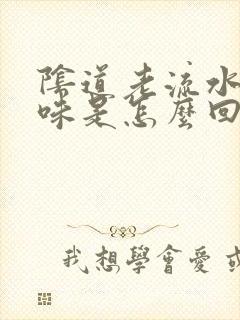 陰道老流水
味是怎麼回
我想學會愛